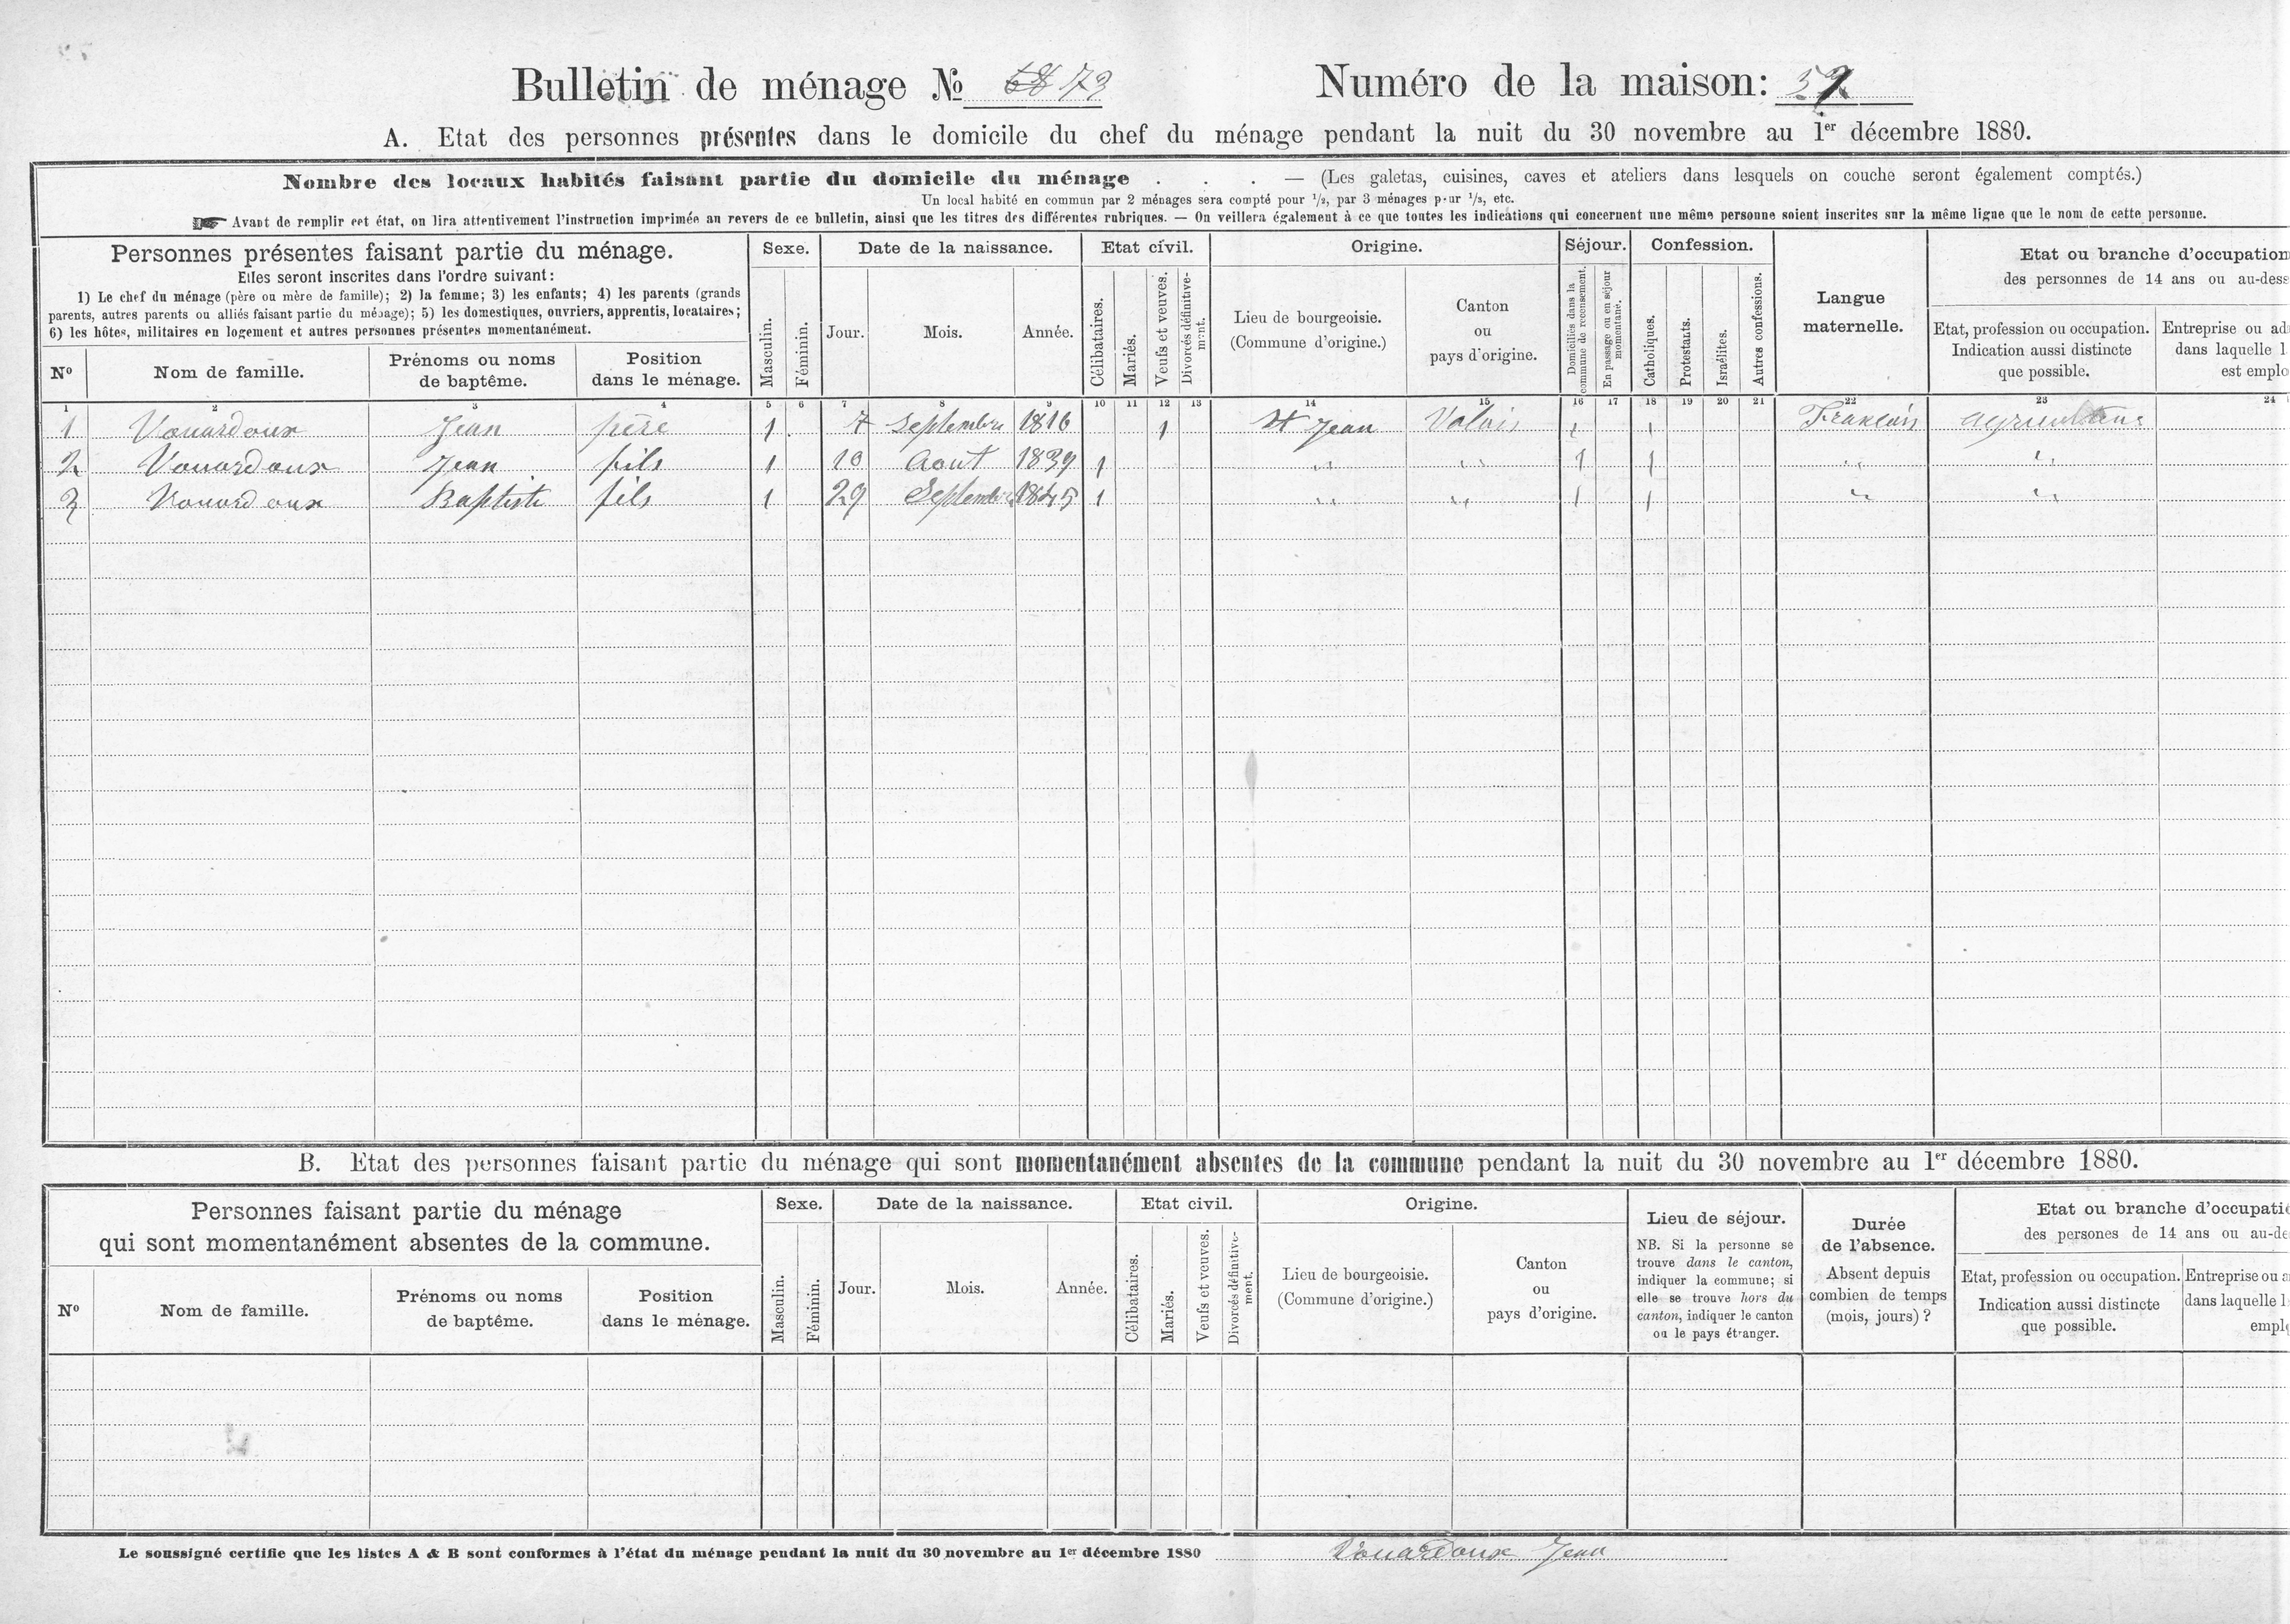 Bulletin de ménage № 73 Numéro de la maison:
A. Etat des personnes présentes dans le domicile du chef du ménage pendant la nuit du 30 novembre au 1er décembre 1880.
Nombre des locaux habités faisant partie du domicile du ménage . . . — (Les galetas, cuisines, caves et ateliers dans lesquels on couche seront également comptés.)
Un local habité en commun par 2 ménages sera compté pour 1/2, par 3 ménages pour 1/3, etc.
☛ Avant de remplir cet état, on lira attentivement l'instruction imprimée au revers de ce bulletin, ainsi que les titres des différentes rubriques. — On veillera également à ce que toutes les indications qui concernent une même personne soient inscrites sur la même ligne que le nom de cette personne.
Personnes présentes faisant partie du ménage.
Elles seront inscrites dans l'ordre suivant:
1) Le chef du ménage (père ou mère de famille); 2) la femme; 3) les enfants; 4) les parents (grands
parents, autres parents ou alliés faisant partie du ménage); 5) les domestiques, ouvriers, apprentis, locataires;
6) les hôtes, militaires en logement et autres personnes présentes momentanément.
N° Nom de famille. Prénoms ou noms de baptême. Position dans le ménage.
Sexe. Masculin. Féminin.
Date de la naissance. Jour. Mois. Année.
Etat civil. Célibataires. Mariés. Veufs et veuves. Divorcés définitivement.
Origine. Lieu de bourgeoisie. (Commune d'origine.) Canton ou pays d'origine.
Séjour. Domiciliés dans la commune de recensement. En passage ou en séjour momentané.
Confession. Catholiques. Protestants. Israélites. Autres confessions.
Langue maternelle.
Etat ou branche d'occupation
des personnes de 14 ans ou au-dess
Etat, profession ou occupation. Indication aussi distincte que possible.
Entreprise ou ad
dans laquelle l
est emplo
1 2 3 4 5 6 7 8 9 10 11 12 13 14 15 16 17 18 19 20 21 22 23 24
1 Vouardoux Jean père 1 7 Septembre 1816 1 St Jean Valais 1 1 Français agriculteur
2 Vouardoux Jean fils 1 10 Aout 1839 1 " " 1 1 " "
3 Vouardoux Baptiste fils 1 29 Septembre 1845 1 " " 1 1 " "
B. Etat des personnes faisant partie du ménage qui sont momentanément absentes de la commune pendant la nuit du 30 novembre au 1er décembre 1880.
Personnes faisant partie du ménage
qui sont momentanément absentes de la commune.
N° Nom de famille. Prénoms ou noms de baptême. Position dans le ménage.
Sexe. Masculin. Féminin.
Date de la naissance. Jour. Mois. Année.
Etat civil. Célibataires. Mariés. Veufs et veuves. Divorcés définitivement.
Origine. Lieu de bourgeoisie. (Commune d'origine.) Canton ou pays d'origine.
Lieu de séjour.
NB. Si la personne se
trouve dans le canton,
indiquer la commune; si
elle se trouve hors du
canton, indiquer le canton
ou le pays étranger.
Durée
de l'absence.
Absent depuis
combien de temps
(mois, jours) ?
Etat ou branche d'occupati
des persones de 14 ans ou au-de
Etat, profession ou occupation.
Indication aussi distincte
que possible.
Entreprise ou a
dans laquelle l
empl
Le soussigné certifie que les listes A & B sont conformes à l'état du ménage pendant la nuit du 30 novembre au 1er décembre 1880 Vouardoux Jean